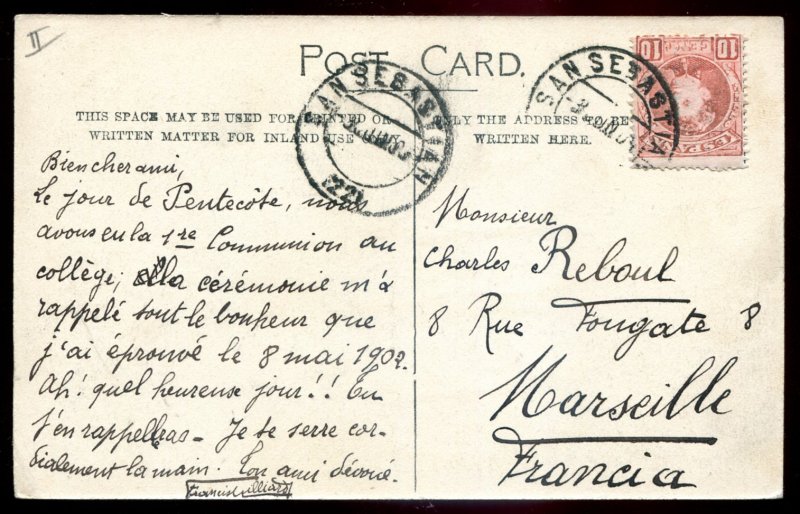 II
POST CARD.
THIS SPACE MAY BE USED FOR PRINTED OR
WRITTEN MATTER FOR INLAND USE ONLY
ONLY THE ADDRESS TO BE
WRITTEN HERE.
SAN SEBASTIAN
SAN SEBASTIA
10 10
CENT
Bien cher ami,
Le jour de Pentecôte, nous
avons eu la 1re Communion au
collège; la cérémonie m'a
rappelé tout le bonheur que
j'ai éprouvé le 8 mai 1902.
Ah! quel heureuse jour!! Tu
t'en rappelleras - Je te serre cor-
dialement la main. Ton ami dévoué.
Monsieur
Charles Reboul
8 Rue Fongate 8
Marseille
Francia